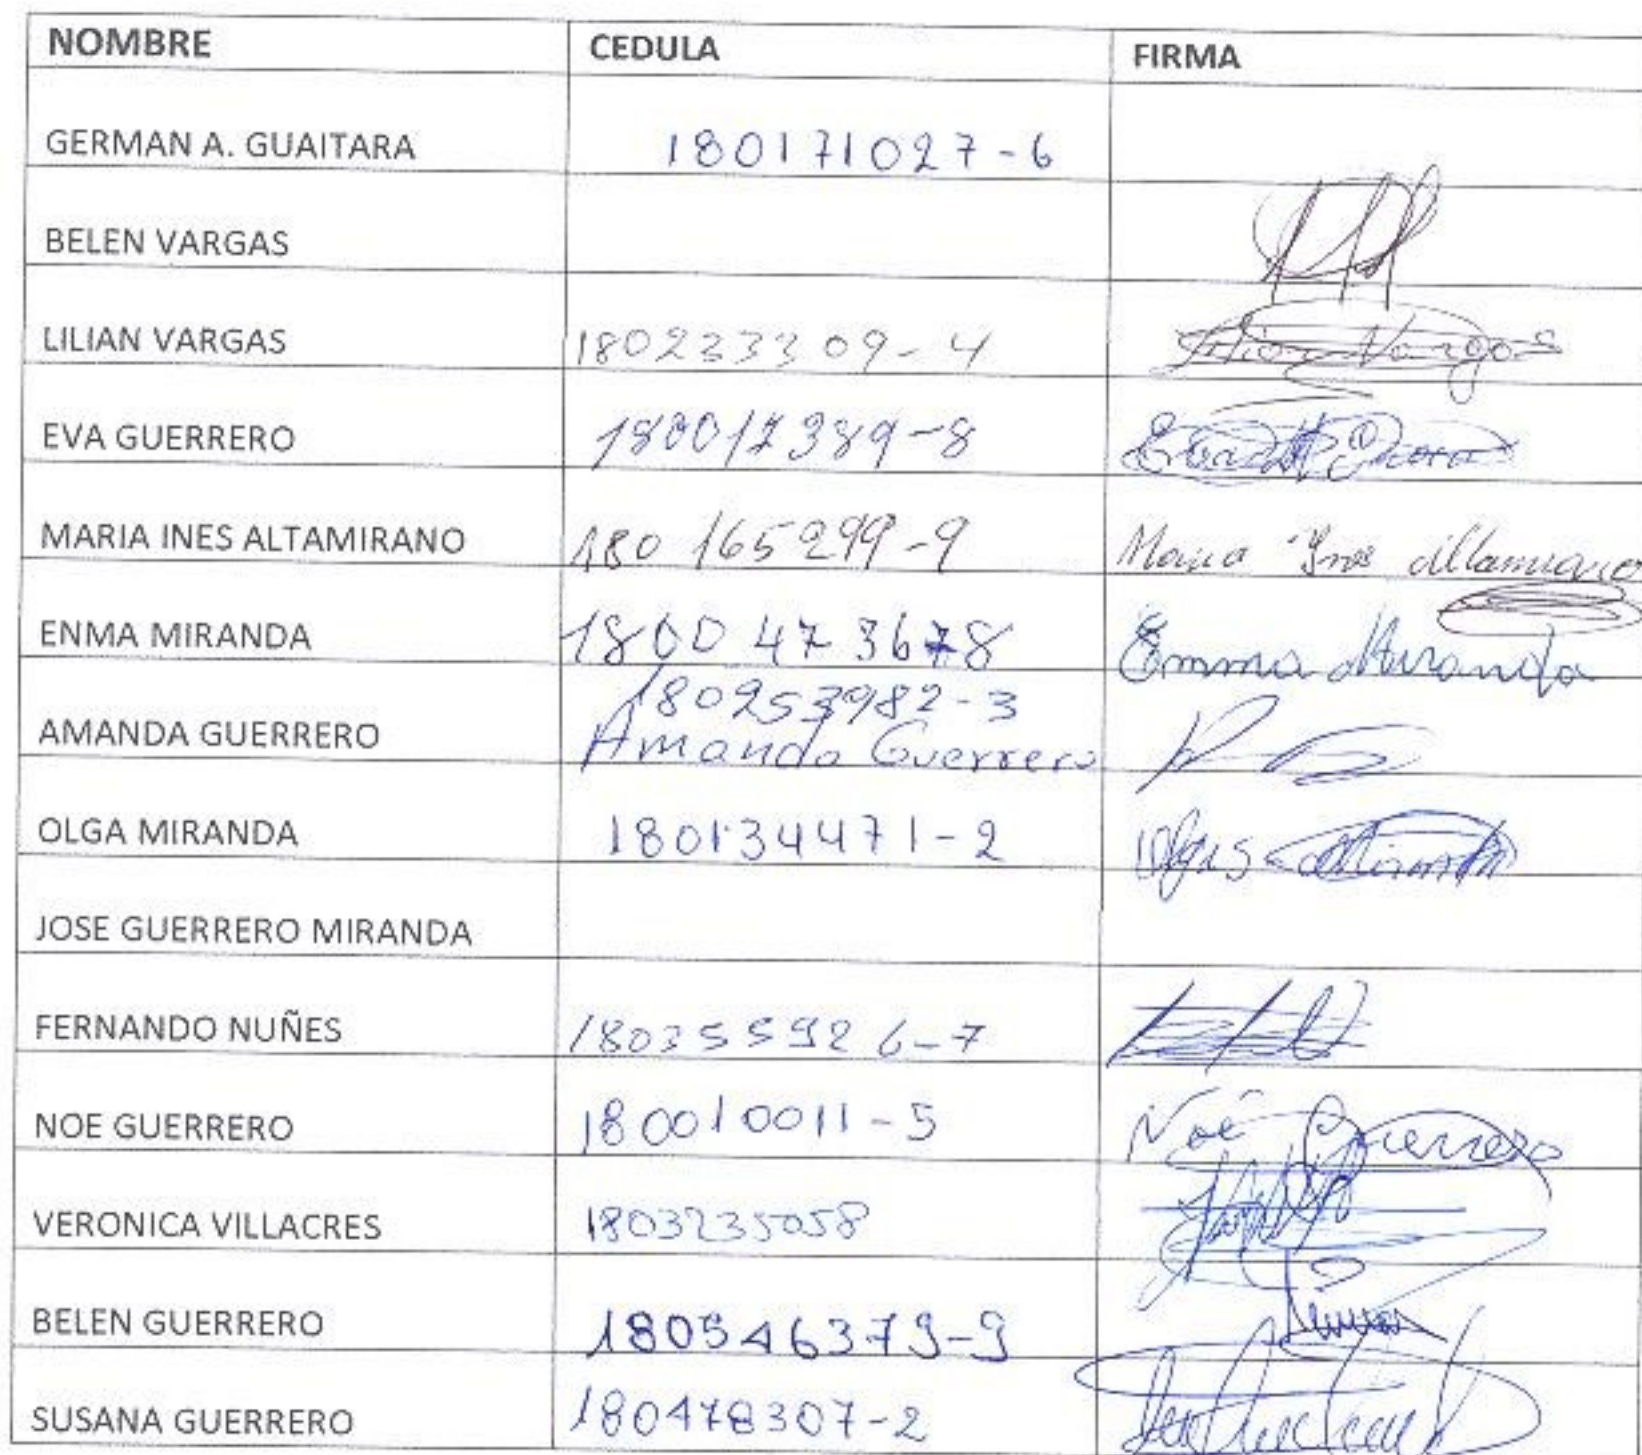 NOMBRE CEDULA FIRMA
GERMAN A. GUAITARA 180171027-6
BELEN VARGAS
LILIAN VARGAS 180233309-4 Lilian Vargas
EVA GUERRERO 180017389-8
MARIA INES ALTAMIRANO 180165299-9 Maria Ines Altamirano
ENMA MIRANDA 1800473678 Emma Miranda
180253982-3
AMANDA GUERRERO Amanda Guerrero
OLGA MIRANDA 180134471-2 Miranda
JOSE GUERRERO MIRANDA
FERNANDO NUÑES 180355926-7
NOE GUERRERO 180010011-5 Noé Guerrero
VERONICA VILLACRES 1803235058
BELEN GUERRERO 180546379-9
SUSANA GUERRERO 180478307-2